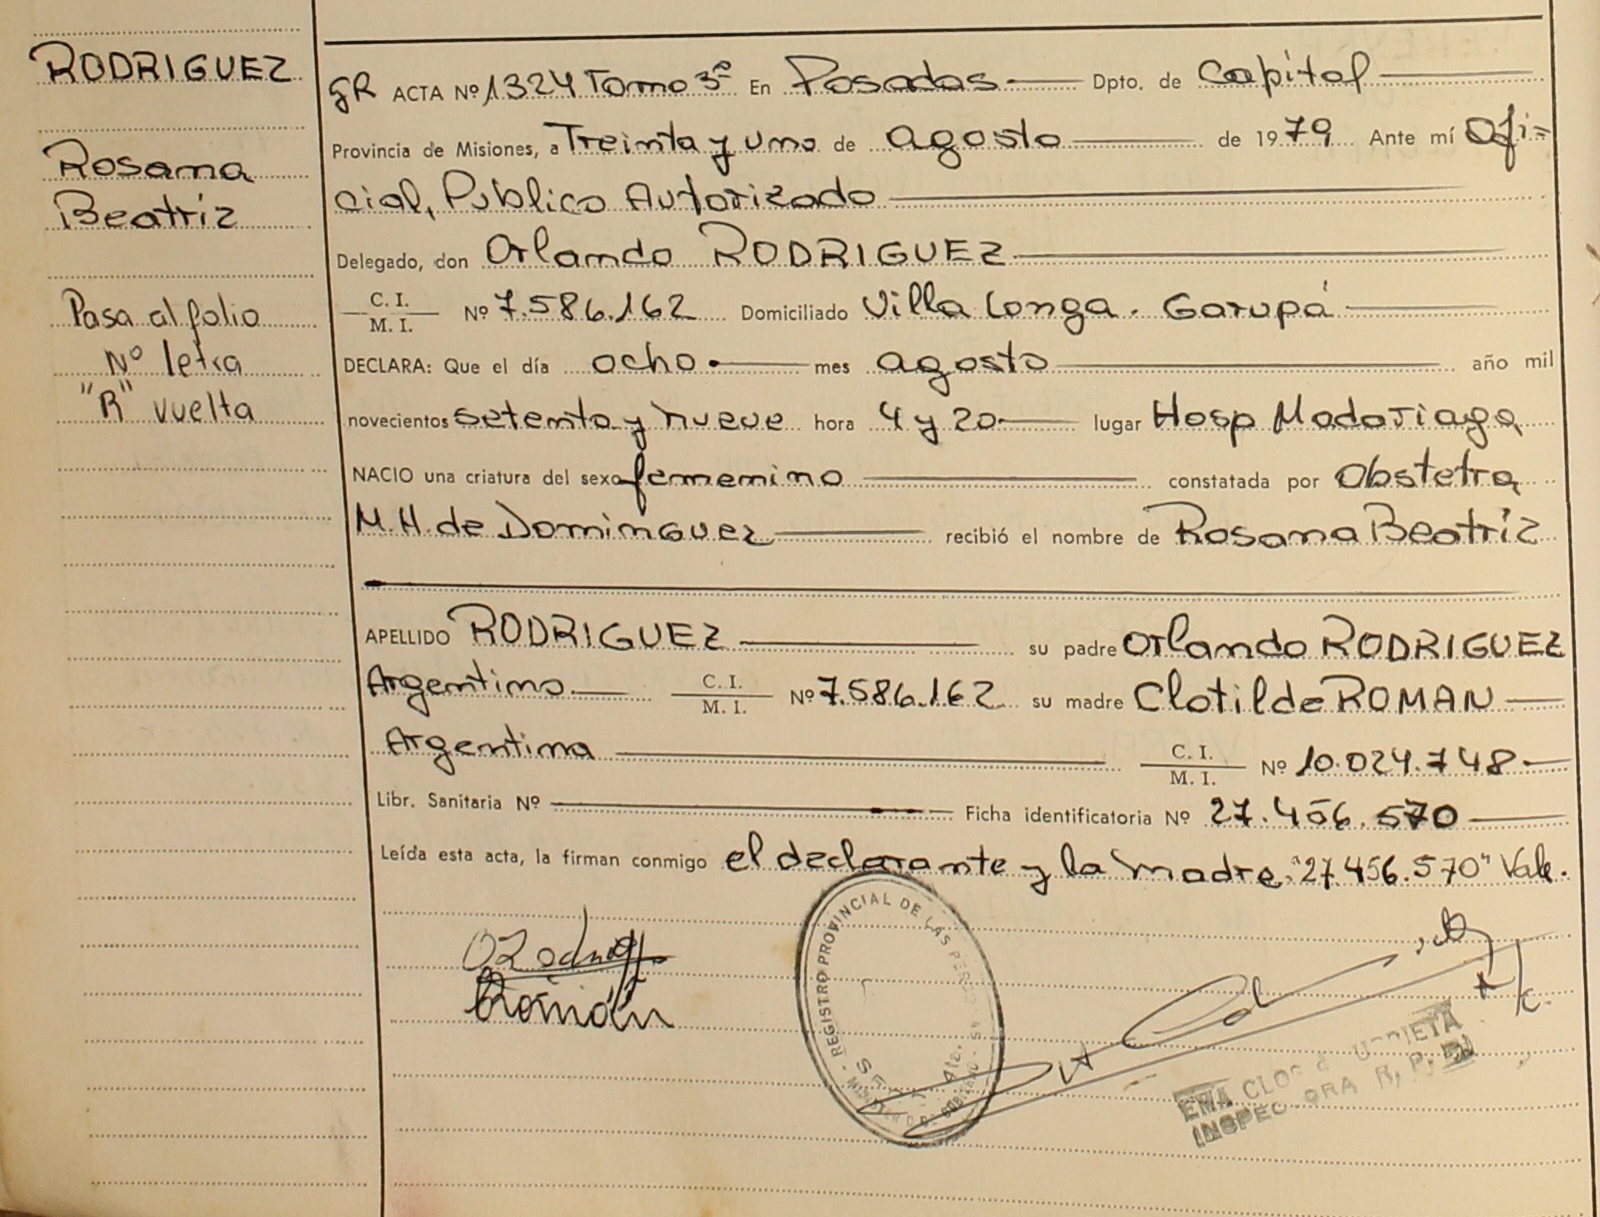 RODRIGUEZ
Rosana
Beatriz
Pasa al folio
Nº letra
"R" vuelta
gR ACTA Nº 1324 Tomo 3º En Posadas Dpto. de Capital
Provincia de Misiones, a Treinta y uno de agosto de 1979 Ante mí Ofi=
cial, Público Autorizado
Delegado, don Orlando RODRIGUEZ
C. I.
M. I. Nº 7.586.162 Domiciliado Villa Longa. Garupá
DECLARA: Que el día ocho mes agosto año mil
novecientos setenta y nueve hora 4 y 20 lugar Hosp Madariaga
NACIO una criatura del sexo femenino constatada por Obstetra
M.H. de Dominguez recibió el nombre de Rosana Beatriz
APELLIDO RODRIGUEZ su padre Orlando RODRIGUEZ
Argentino C. I.
M. I. Nº 7.586.162 su madre Clotilde ROMAN
Argentina C. I.
M. I. Nº 10.024.748
Libr. Sanitaria Nº Ficha identificatoria Nº 27.456.570
Leída esta acta, la firman conmigo el declarante y la madre. "27.456.570" Vale.
Román
REGISTRO PROVINCIAL DE LAS PERSONAS
INSPECTORA R. P.